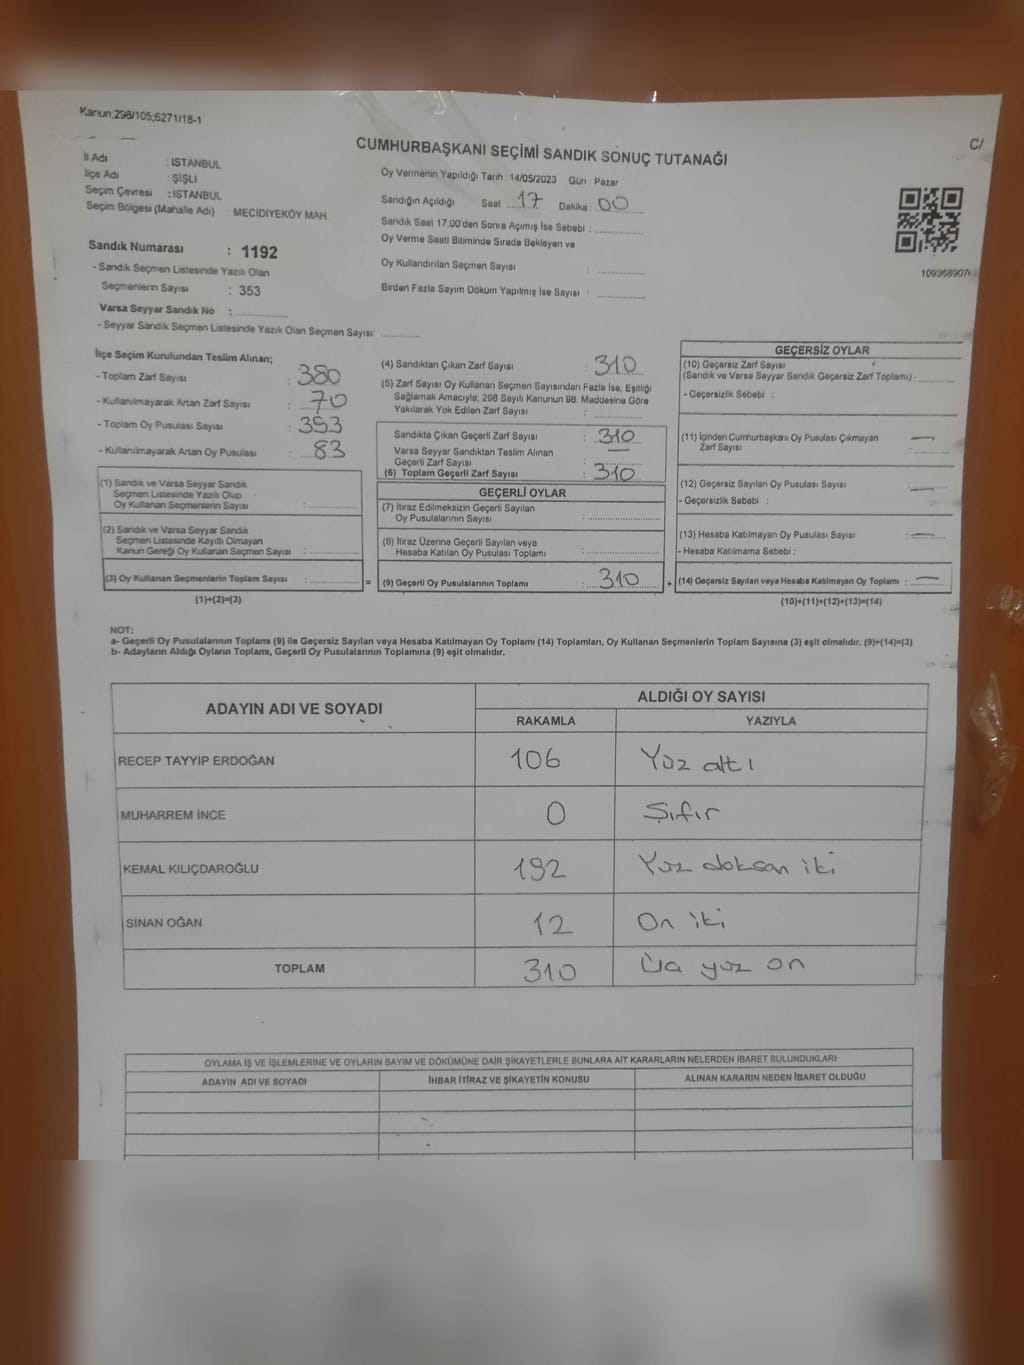 Kanun;298/105;6271/18-1
C/
CUMHURBAŞKANI SEÇİMİ SANDIK SONUÇ TUTANAĞI
İl Adı : İSTANBUL
İlçe Adı : ŞİŞLİ
Seçim Çevresi : İSTANBUL
Seçim Bölgesi (Mahalle Adı) : MECİDİYEKÖY MAH.
Sandık Numarası : 1192
- Sandık Seçmen Listesinde Yazılı Olan
Seçmenlerin Sayısı : 353
Varsa Seyyar Sandık No : ..............
- Seyyar Sandık Seçmen Listesinde Yazılı Olan Seçmen Sayısı: ...........
Oy Vermenin Yapıldığı Tarih : 14/05/2023 Gün : Pazar
Sandığın Açıldığı Saat 17 Dakika : 00
Sandık Saat 17:00'den Sonra Açımış İse Sebebi : ..............
Oy Verme Saati Bitiminde Sırada Bekleyen ve
Oy Kullandırılan Seçmen Sayısı : ..............
Birden Fazla Sayım Döküm Yapılmış İse Sayısı : ..............
109368907
İlçe Seçim Kurulundan Teslim Alınan;
- Toplam Zarf Sayısı : 380
- Kullanılmayarak Artan Zarf Sayısı : 70
- Toplam Oy Pusulası Sayısı : 393
- Kullanılmayarak Artan Oy Pusulası : 83
(1) Sandık ve Varsa Seyyar Sandık
Seçmen Listesinde Yazılı Olup
Oy Kullanan Seçmenlerin Sayısı : ..............
(2) Sandık ve Varsa Seyyar Sandık
Seçmen Listesinde Kayıtlı Olmayan
Kanun Gereği Oy Kullanan Seçmen Sayısı : ..............
(3) Oy Kullanan Seçmenlerin Toplam Sayısı : ..............
(1)+(2)=(3)
=
(4) Sandıktan Çıkan Zarf Sayısı : 310
(5) Zarf Sayısı Oy Kullanan Seçmen Sayısından Fazla İse, Eşitliği
Sağlamak Amacıyla; 298 Sayılı Kanunun 98. Maddesine Göre
Yakılarak Yok Edilen Zarf Sayısı : ..............
Sandıkta Çıkan Geçerli Zarf Sayısı : 310
Varsa Seyyar Sandıktan Teslim Alınan
Geçerli Zarf Sayısı : —
(6) Toplam Geçerli Zarf Sayısı : 310
GEÇERLİ OYLAR
(7) İtiraz Edilmeksizin Geçerli Sayılan
Oy Pusulalarının Sayısı : ..............
(8) İtiraz Üzerine Geçerli Sayılan veya
Hesaba Katılan Oy Pusulası Toplamı : ..............
(9) Geçerli Oy Pusulalarının Toplamı : 310
+
GEÇERSİZ OYLAR
(10) Geçersiz Zarf Sayısı
(Sandık ve Varsa Seyyar Sandık Geçersiz Zarf Toplamı) : ...........
- Geçersizlik Sebebi :
(11) İçinden Cumhurbaşkanı Oy Pusulası Çıkmayan
Zarf Sayısı : —
(12) Geçersiz Sayılan Oy Pusulası Sayısı : —
- Geçersizlik Sebebi :
(13) Hesaba Katılmayan Oy Pusulası Sayısı : —
- Hesaba Katılmama Sebebi :
(14) Geçersiz Sayılan veya Hesaba Katılmayan Oy Toplamı : —
(10)+(11)+(12)+(13)=(14)
NOT:
a- Geçerli Oy Pusulalarının Toplamı (9) ile Geçersiz Sayılan veya Hesaba Katılmayan Oy Toplamı (14) Toplamları, Oy Kullanan Seçmenlerin Toplam Sayısına (3) eşit olmalıdır. (9)+(14)=(3)
b- Adayların Aldığı Oyların Toplamı, Geçerli Oy Pusulalarının Toplamına (9) eşit olmalıdır.
ADAYIN ADI VE SOYADI ALDIĞI OY SAYISI
RAKAMLA YAZIYLA
RECEP TAYYİP ERDOĞAN 106 Yüz altı
MUHARREM İNCE 0 Şıfır
KEMAL KILIÇDAROĞLU 192 Yüz doksan iki
SİNAN OĞAN 12 On iki
TOPLAM 310 yüz on
OYLAMA İŞ VE İŞLEMLERİNE VE OYLARIN SAYIM VE DÖKÜMÜNE DAİR ŞİKAYETLERLE BUNLARA AİT KARARLARIN NELERDEN İBARET BULUNDUKLARI
ADAYIN ADI VE SOYADI İHBAR İTİRAZ VE ŞİKAYETİN KONUSU ALINAN KARARIN NEDEN İBARET OLDUĞU